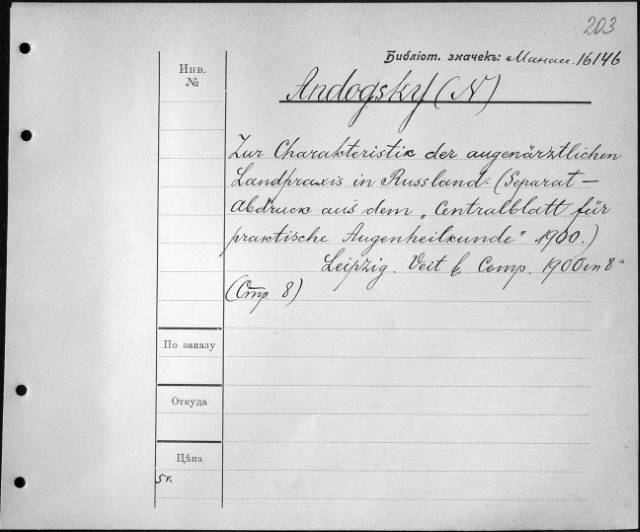 203
Библіот. значекъ: Манас. 16146
Инв.
№
Andogsky (N)
Zur Charakteristik der augenärztlichen
Landpraxis in Russland. (Separat-
abdruck aus dem „Centralblatt für
praktische Augenheilkunde" 1900.)
Leipzig. Veit & Comp. 1900 in 8°
(Стр. 8)
По заказу
Откуда
Цѣна
5к